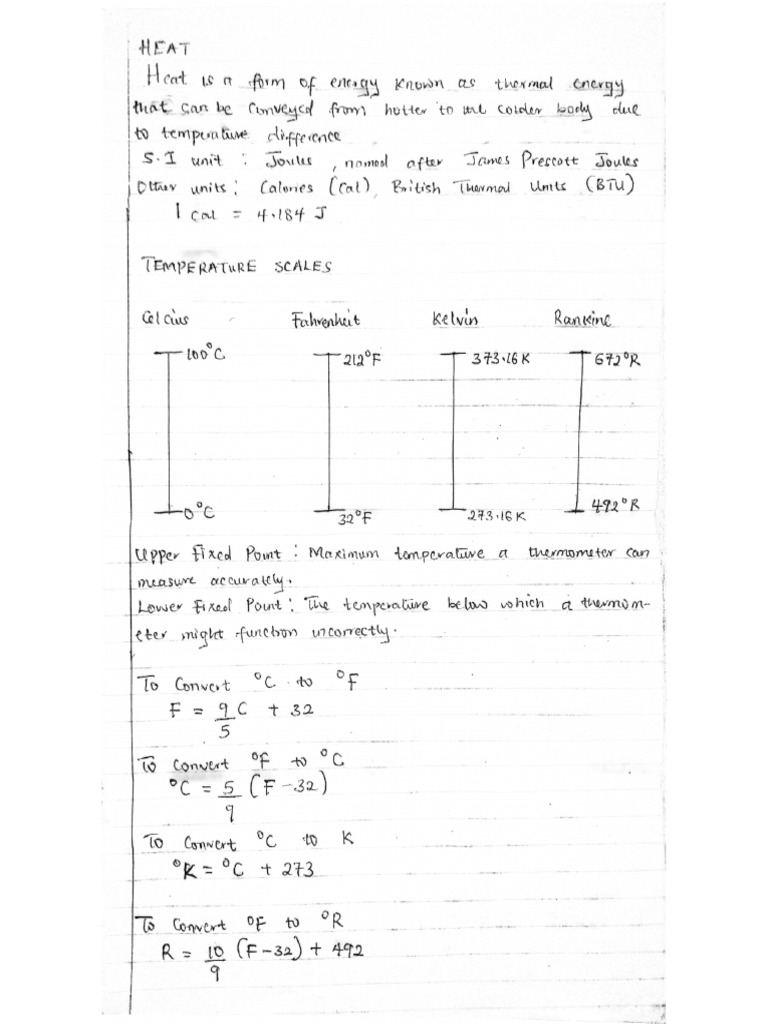 HEAT
Heat is a form of energy known as thermal energy
that can be conveyed from hotter to the colder body due
to temperature difference
S.I unit : Joules , named after James Prescott Joules
Other units : Calories (Cal), British Thermal Units (BTU)
1 cal = 4.184 J
TEMPERATURE SCALES
Celcius Fahrenheit Kelvin Rankine
100°C 212°F 373.16 K 672°R
0°C 32°F 273.16 K 492°R
Upper Fixed Point : Maximum temperature a thermometer can
measure accurately.
Lower Fixed Point : The temperature below which a thermom-
eter might function incorrectly.
To Convert °C to °F
F = 9/5 C + 32
To Convert °F to °C
°C = 5/9 (F - 32)
To Convert °C to K
°K = °C + 273
To Convert °F to °R
R = 10/9 (F - 32) + 492